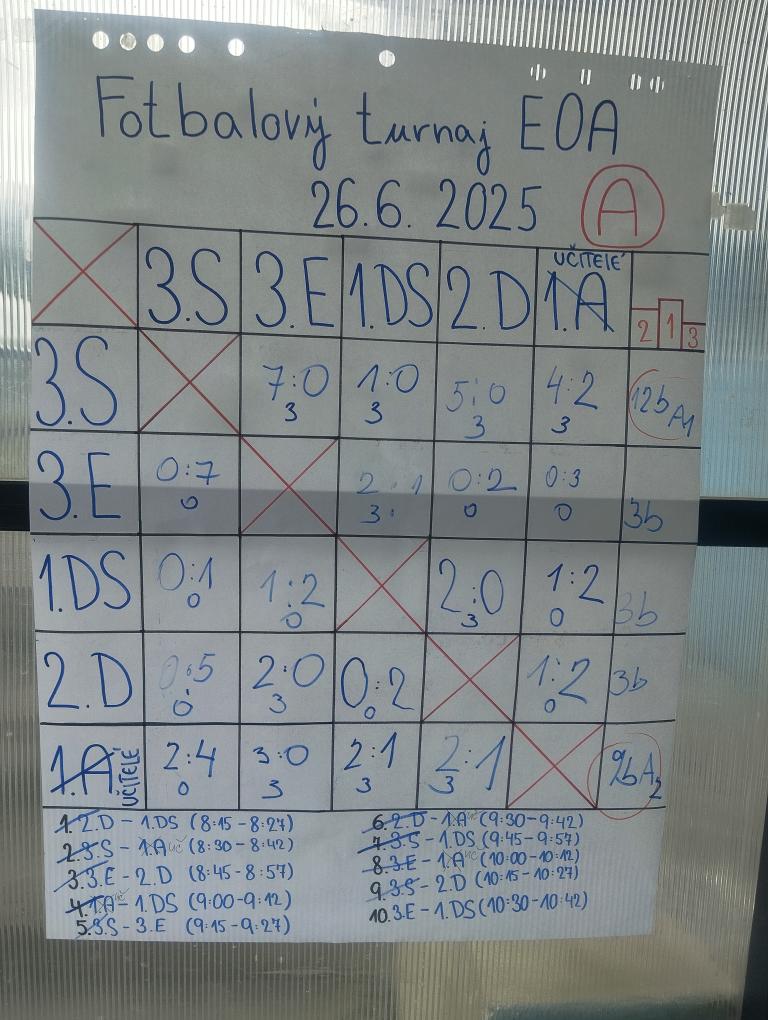 Fotbalový turnaj EOA
26.6. 2025 A
3.S 3.E 1.DS 2.D UČITELÉ 1.A 2 1 3
3.S 7:0 1:0 5:0 4:2 12b A1
3 3 3 3
3.E 0:7 2:1 0:2 0:3 3b
0 3 0 0
1.DS 0:1 1:2 2:0 1:2 3b
0 0 3 0
2.D 0:5 2:0 0:2 1:2 3b
0 3 0 0
1.A UČITELÉ 2:4 3:0 2:1 2:1 9b A2
0 3 3 3
1. 2.D - 1.DS (8:15 - 8:27)
2. 3.S - 1.A UČ (8:30 - 8:42)
3. 3.E - 2.D (8:45 - 8:57)
4. 1.A UČ - 1.DS (9:00 - 9:12)
5. 3.S - 3.E (9:15 - 9:27)
6. 2.D - 1.A UČ (9:30 - 9:42)
7. 3.S - 1.DS (9:45 - 9:57)
8. 3.E - 1.A UČ (10:00 - 10:12)
9. 3.S - 2.D (10:15 - 10:27)
10. 3.E - 1.DS (10:30 - 10:42)